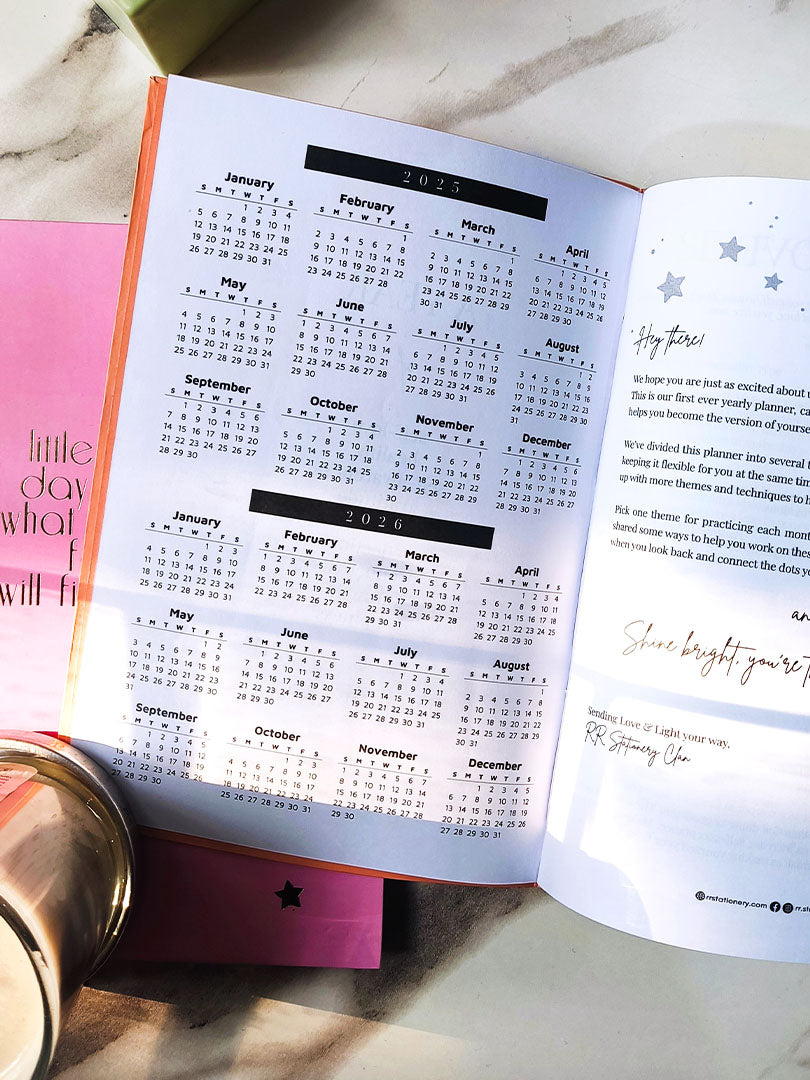 little
day
what
f
will fi
2025
January
S M T W T F S
1 2 3 4
5 6 7 8 9 10 11
12 13 14 15 16 17 18
19 20 21 22 23 24 25
26 27 28 29 30 31
February
S M T W T F S
1
2 3 4 5 6 7 8
9 10 11 12 13 14 15
16 17 18 19 20 21 22
23 24 25 26 27 28
March
S M T W T F S
1
2 3 4 5 6 7 8
9 10 11 12 13 14 15
16 17 18 19 20 21 22
23 24 25 26 27 28 29
30 31
April
S M T W T F S
1 2 3 4 5
6 7 8 9 10 11 12
13 14 15 16 17 18 19
20 21 22 23 24 25 26
27 28 29 30
May
S M T W T F S
1 2 3
4 5 6 7 8 9 10
11 12 13 14 15 16 17
18 19 20 21 22 23 24
25 26 27 28 29 30 31
June
S M T W T F S
1 2 3 4 5 6 7
8 9 10 11 12 13 14
15 16 17 18 19 20 21
22 23 24 25 26 27 28
29 30
July
S M T W T F S
1 2 3 4 5
6 7 8 9 10 11 12
13 14 15 16 17 18 19
20 21 22 23 24 25 26
27 28 29 30 31
August
S M T W T F S
1 2
3 4 5 6 7 8 9
10 11 12 13 14 15 16
17 18 19 20 21 22 23
24 25 26 27 28 29 30
31
September
S M T W T F S
1 2 3 4 5 6
7 8 9 10 11 12 13
14 15 16 17 18 19 20
21 22 23 24 25 26 27
28 29 30
October
S M T W T F S
1 2 3 4
5 6 7 8 9 10 11
12 13 14 15 16 17 18
19 20 21 22 23 24 25
26 27 28 29 30 31
November
S M T W T F S
1
2 3 4 5 6 7 8
9 10 11 12 13 14 15
16 17 18 19 20 21 22
23 24 25 26 27 28 29
30
December
S M T W T F S
1 2 3 4 5 6
7 8 9 10 11 12 13
14 15 16 17 18 19 20
21 22 23 24 25 26 27
28 29 30 31
2026
January
S M T W T F S
1 2 3
4 5 6 7 8 9 10
11 12 13 14 15 16 17
18 19 20 21 22 23 24
25 26 27 28 29 30 31
February
S M T W T F S
1 2 3 4 5 6 7
8 9 10 11 12 13 14
15 16 17 18 19 20 21
22 23 24 25 26 27 28
March
S M T W T F S
1 2 3 4 5 6 7
8 9 10 11 12 13 14
15 16 17 18 19 20 21
22 23 24 25 26 27 28
29 30 31
April
S M T W T F S
1 2 3 4
5 6 7 8 9 10 11
12 13 14 15 16 17 18
19 20 21 22 23 24 25
26 27 28 29 30
May
S M T W T F S
1 2
3 4 5 6 7 8 9
10 11 12 13 14 15 16
17 18 19 20 21 22 23
24 25 26 27 28 29 30
31
June
S M T W T F S
1 2 3 4 5 6
7 8 9 10 11 12 13
14 15 16 17 18 19 20
21 22 23 24 25 26 27
28 29 30
July
S M T W T F S
1 2 3 4
5 6 7 8 9 10 11
12 13 14 15 16 17 18
19 20 21 22 23 24 25
26 27 28 29 30 31
August
S M T W T F S
1
2 3 4 5 6 7 8
9 10 11 12 13 14 15
16 17 18 19 20 21 22
23 24 25 26 27 28 29
30 31
September
S M T W T F S
1 2 3 4 5
6 7 8 9 10 11 12
13 14 15 16 17 18 19
20 21 22 23 24 25 26
27 28 29 30
October
S M T W T F S
1 2 3
4 5 6 7 8 9 10
11 12 13 14 15 16 17
18 19 20 21 22 23 24
25 26 27 28 29 30 31
November
S M T W T F S
1 2 3 4 5 6 7
8 9 10 11 12 13 14
15 16 17 18 19 20 21
22 23 24 25 26 27 28
29 30
December
S M T W T F S
1 2 3 4 5
6 7 8 9 10 11 12
13 14 15 16 17 18 19
20 21 22 23 24 25 26
27 28 29 30 31
Hey there!
We hope you are just as excited about
This is our first ever yearly planner, ca
helps you become the version of yourse
We've divided this planner into several t
keeping it flexible for you at the same tim
up with more themes and techniques to h
Pick one theme for practicing each mont
shared some ways to help you work on thes
when you look back and connect the dots yo
an
Shine bright, you're t
Sending Love & Light your way,
RR Stationery Clan
rrstationery.com rr.st